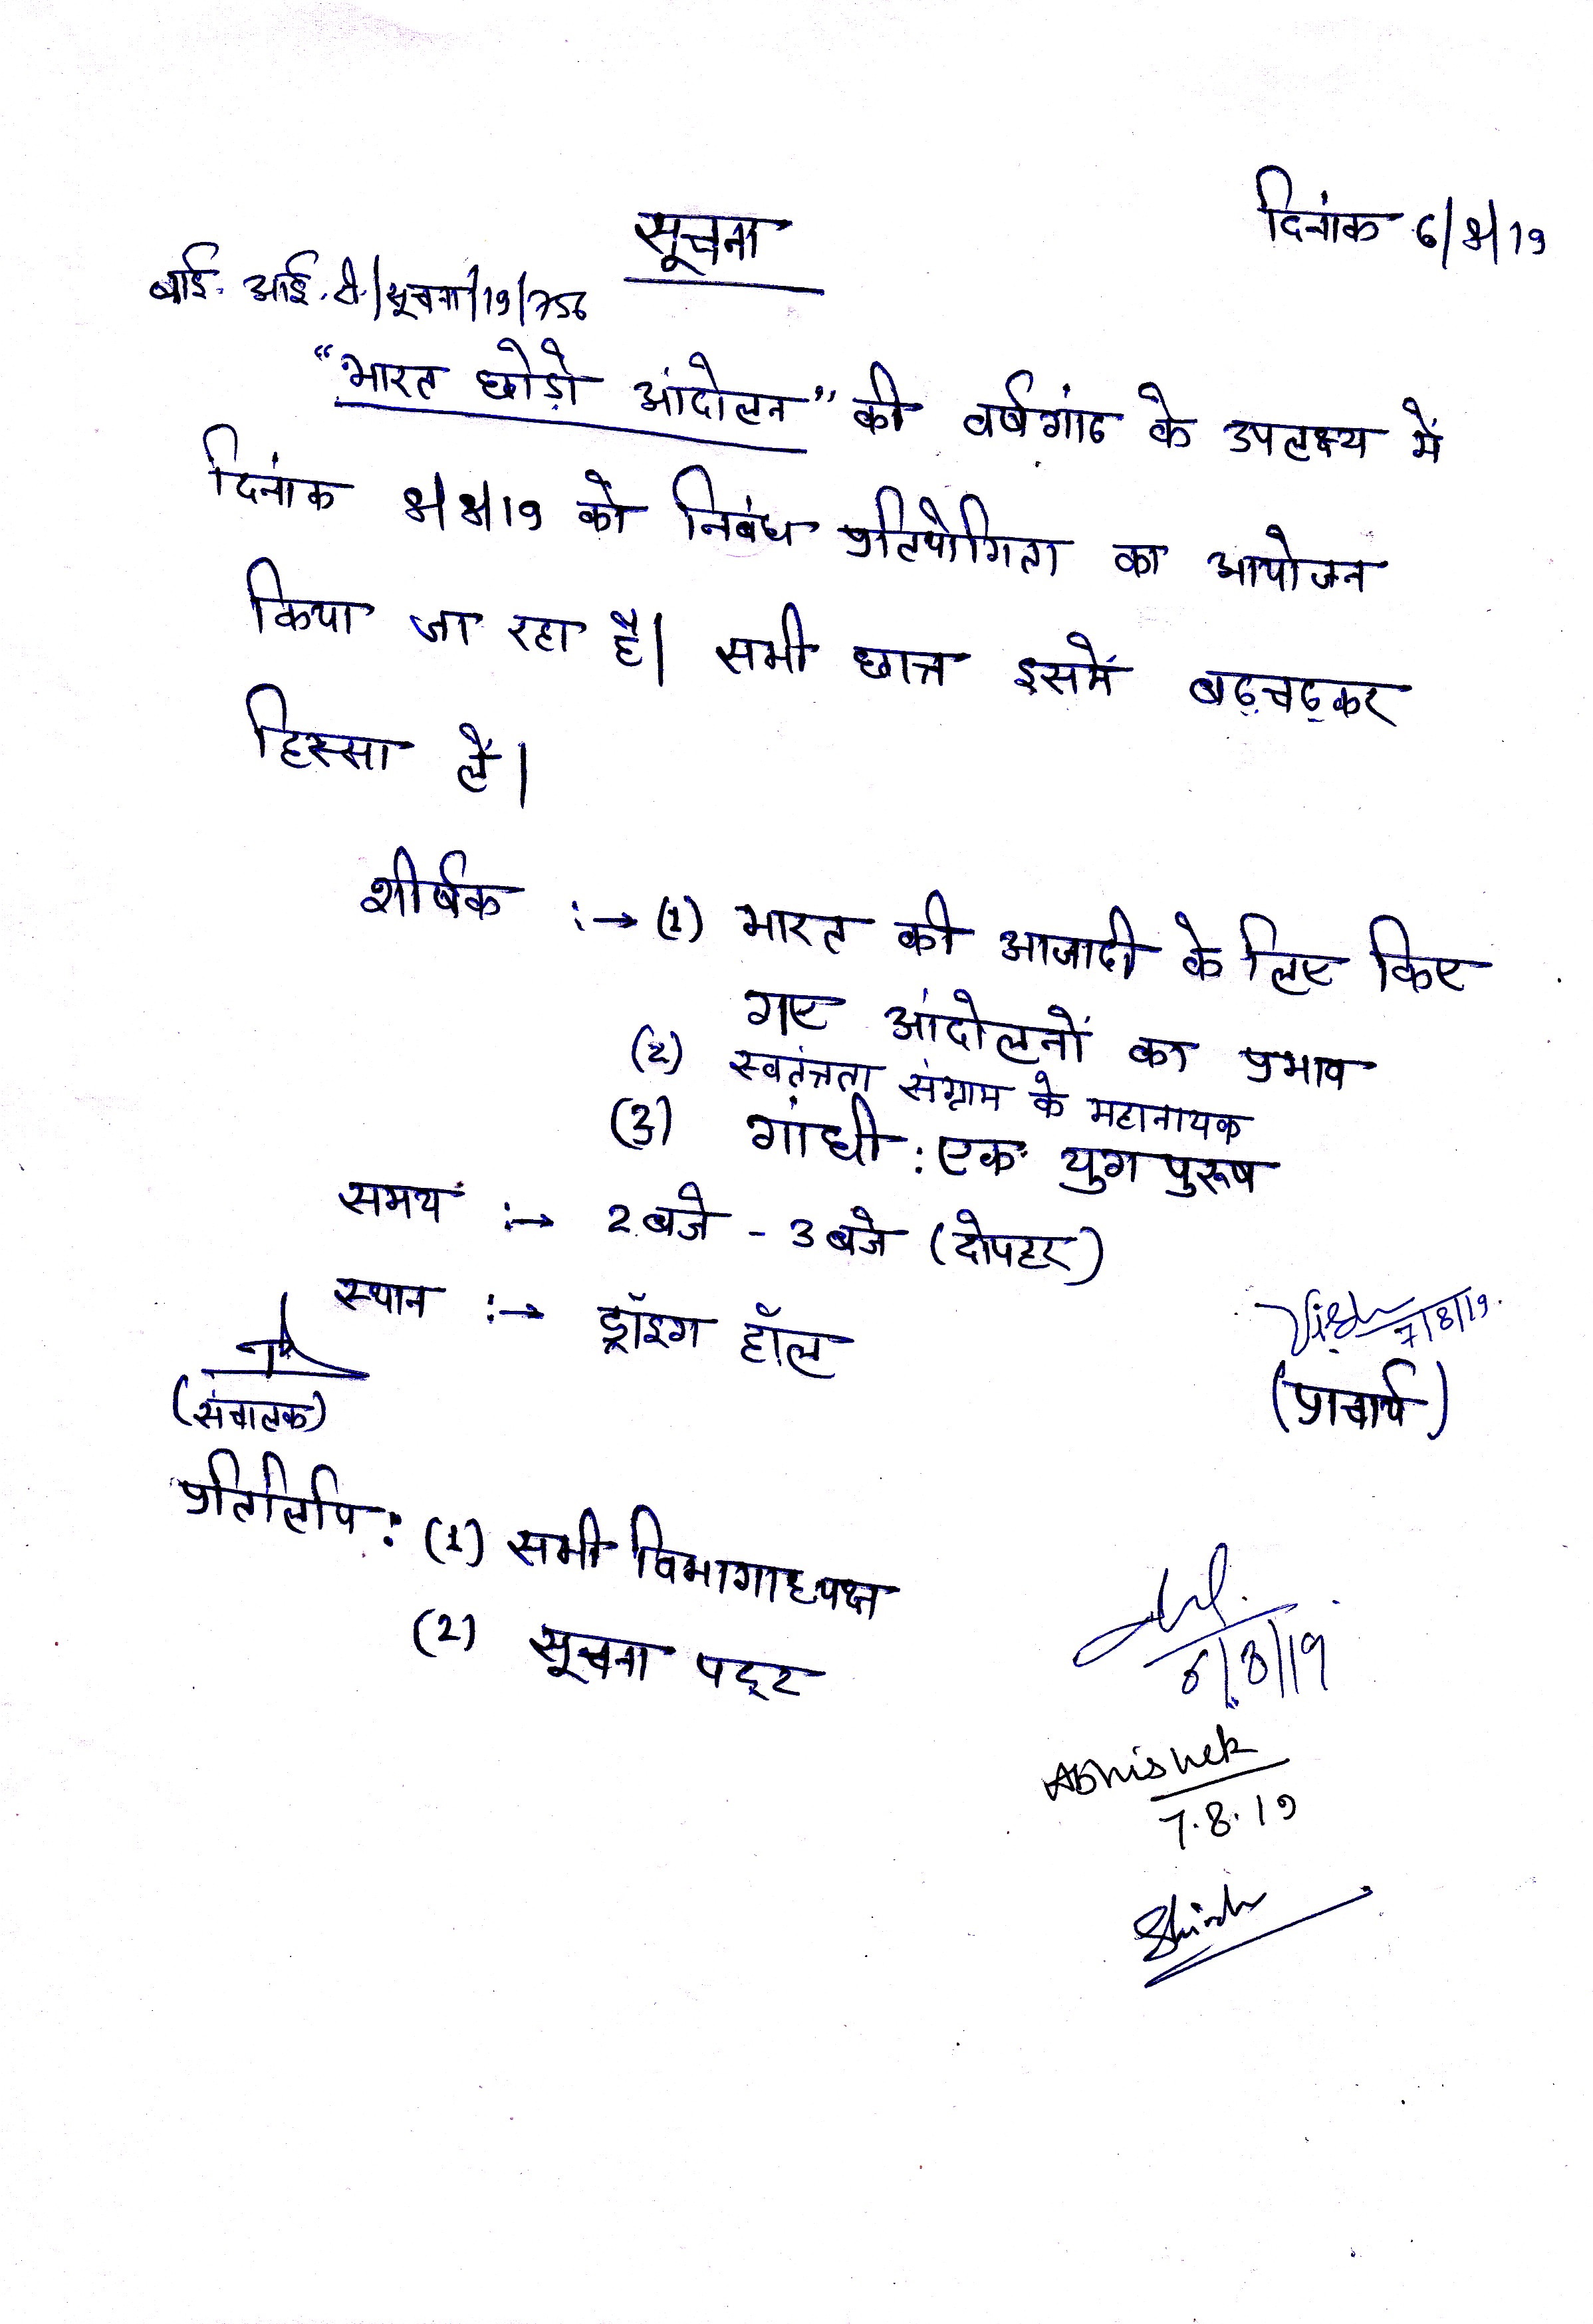 दिनांक 6/8/19
सूचना
बाई. आई. टी./सूचना/19/756
“भारत छोड़ो आंदोलन” की वर्षगांठ के उपलक्ष्य में
दिनांक 8/8/19 को निबंध प्रतियोगिता का आयोजन
किया जा रहा है। सभी छात्र इसमें बढ़चढ़कर
हिस्सा लें।
शीर्षक :→ (1) भारत की आजादी के लिए किए
गए आंदोलनों का प्रभाव
(2) स्वतंत्रता संग्राम के महानायक
(3) गांधी : एक युग पुरूष
समय :→ 2 बजे - 3 बजे (दोपहर)
स्थान :→ ड्रॉइंग हॉल
7/8/19.
(संचालक)
(प्राचार्य)
प्रतिलिपि : (1) सभी विभागाध्यक्ष
(2) सूचना पट्ट
6/8/19
Abhishek
7.8.19